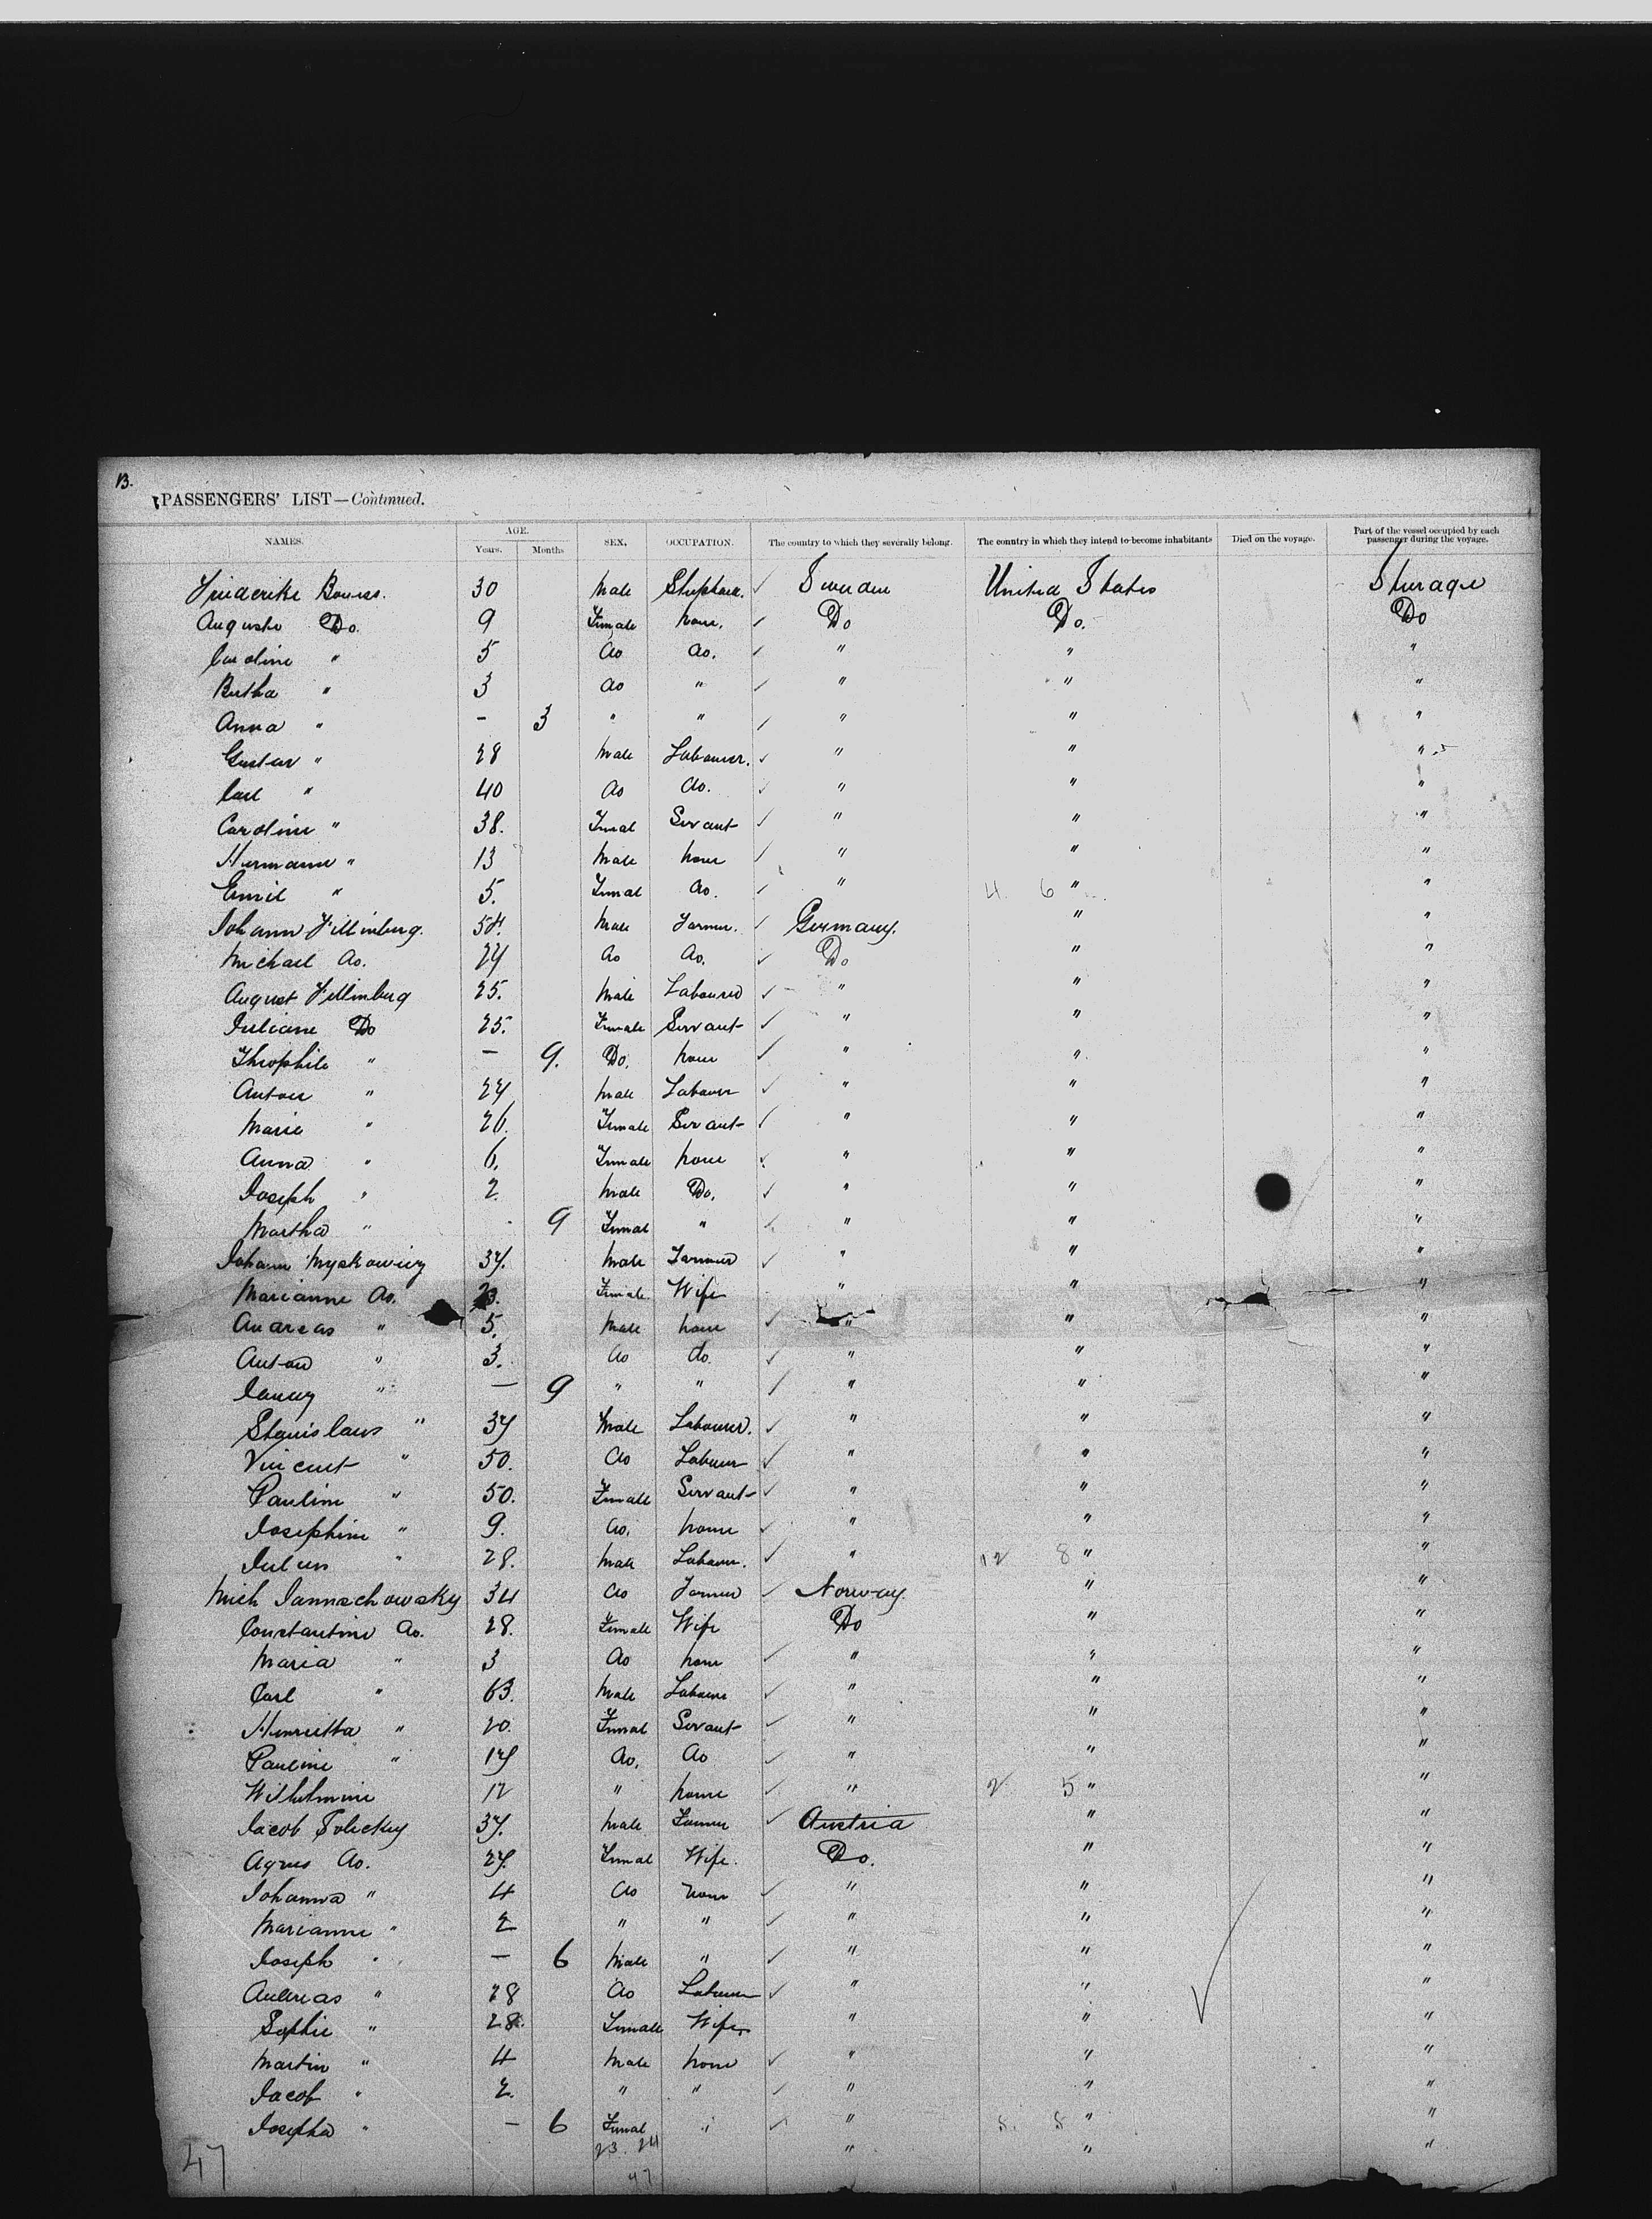 13.
PASSENGERS' LIST—Continued.
NAMES. AGE. Years. Months SEX. OCCUPATION. The country to which they severally belong. The country in which they intend to become inhabitants Died on the voyage. Part of the vessel occupied by each passenger during the voyage.
Friederike 30 Male ✓ Sweden United States Sterage
Auguste Do. 9 Female none. ✓ Do Do. Do
Caroline " 5 do do. ✓ " " "
Bertha " 3 do " ✓ " " "
Anna " - 3 " " ✓ " " "
Gustav " 28 Male Labourer. ✓ " " "
Carl " 40 do do. ✓ " " "
Caroline " 38. Femal Servant ✓ " " "
Hermann " 13 Male none ✓ " " "
Emil " 5. Femal do. ✓ " 4 6 " "
Johann 54. Male Farmer. ✓ Germany. " "
Michael do. 27 do do. ✓ Do " "
August 25. Male Labourer ✓ " " "
Juliane Do 25. Female Servant ✓ " " "
Theophile " — 9. Do. none ✓ " " "
Anton " 27 Male Labourer ✓ " " "
Marie " 26. Female Servant ✓ " " "
Anna " 6. Female none ✓ " " "
Joseph " 2. Male Do. ✓ " " "
Martha " - 9 Femal " ✓ " " "
Johann 37. Male Farmer ✓ " " "
Marianne do. Female Wife " " "
Andreas " 5. Male none ✓ " " "
Anton " 3. do do. ✓ " " "
" — 9 " " ✓ " " "
Stanislaus " 37 Male Labourer. ✓ " " "
Vincent " 50. do Labourer ✓ " " "
Pauline " 50. Female Servant ✓ " " "
Josephine " 9. do. none ✓ " " "
Julius " 28. Male Labourer. ✓ " 12 8 " "
Mich Jannschowsky 34 do Farmer ✓ Norway. " "
Constantine do. 28. Female Wife Do " "
Maria " 3 do none ✓ " " "
Carl " 63. Male Labourer ✓ " " "
Henrietta " 20. Femal Servant ✓ " " "
Pauline " 17 do. do ✓ " " "
Wilhelmine 12 " none ✓ " 2 5 " "
Jacob 37. Male Farmer ✓ Austria " "
Agnes do. 27. Femal Wife. Do. " "
Johanna " 4 do none ✓ " " "
Marianne " 2 " " ✓ " " "
Joseph " — 6 Male " ✓ " " "
Andreas " 28 do Labourer ✓ " " "
Sophie " 28. Female Wife " " "
Martin " 4 Male none ✓ " " "
Jacob " 2. " " ✓ " " "
Josepha " - 6 Femal " ✓ " 8. 8 " "
23. 24 " " "
47 47